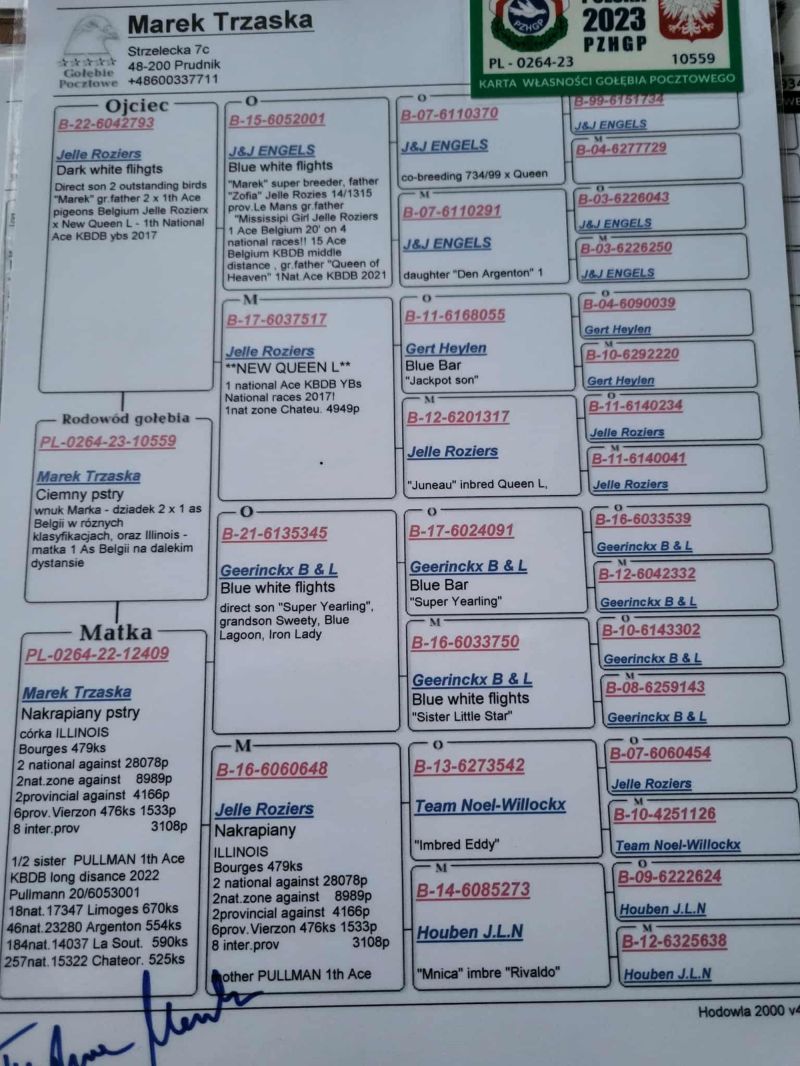 Marek Trzaska
Strzelecka 7c
48-200 Prudnik
+48600337711
Gołębie
Pocztowe
2023
PZHGP
PL - 0264-23
10559
KARTA WŁASNOŚCI GOŁĘBIA POCZTOWEGO
Ojciec
B-22-6042793
Jelle Roziers
Dark white flihgts
Direct son 2 outstanding birds
"Marek" gr.father 2 x 1th Ace
pigeons Belgium Jelle Rozierx
x New Queen L - 1th National
Ace KBDB ybs 2017
Rodowód gołebia
PL-0264-23-10559
Marek Trzaska
Ciemny pstry
wnuk Marka - dziadek 2 x 1 as
Belgii w róznych
klasyfikacjach, oraz Illinois -
matka 1 As Belgii na dalekim
dystansie
Matka
PL-0264-22-12409
Marek Trzaska
Nakrapiany pstry
córka ILLINOIS
Bourges 479ks
2 national against 28078p
2nat.zone against 8989p
2provincial against 4166p
6prov.Vierzon 476ks 1533p
8 inter.prov 3108p
1/2 sister PULLMAN 1th Ace
KBDB long disance 2022
Pullmann 20/6053001
18nat.17347 Limoges 670ks
46nat.23280 Argenton 554ks
184nat.14037 La Sout. 590ks
257nat.15322 Chateor. 525ks
O
B-15-6052001
J&J ENGELS
Blue white flights
"Marek" super breeder, father
"Zofia" Jelle Rozies 14/1315
prov.Le Mans gr.father
"Mississipi Girl Jelle Roziers
1 Ace Belgium 20' on 4
national races!! 15 Ace
Belgium KBDB middle
distance , gr.father "Queen of
Heaven" 1Nat.Ace KBDB 2021
M
B-17-6037517
Jelle Roziers
**NEW QUEEN L**
1 national Ace KBDB YBs
National races 2017!
1nat zone Chateu. 4949p
O
B-21-6135345
Geerinckx B & L
Blue white flights
direct son "Super Yearling",
grandson Sweety, Blue
Lagoon, Iron Lady
M
B-16-6060648
Jelle Roziers
Nakrapiany
ILLINOIS
Bourges 479ks
2 national against 28078p
2nat.zone against 8989p
2provincial against 4166p
6prov.Vierzon 476ks 1533p
8 inter.prov 3108p
mother PULLMAN 1th Ace
O
B-07-6110370
J&J ENGELS
co-breeding 734/99 x Queen
M
B-07-6110291
J&J ENGELS
daughter "Den Argenton" 1
O
B-11-6168055
Gert Heylen
Blue Bar
"Jackpot son"
M
B-12-6201317
Jelle Roziers
"Juneau" inbred Queen L,
O
B-17-6024091
Geerinckx B & L
Blue Bar
"Super Yearling"
M
B-16-6033750
Geerinckx B & L
Blue white flights
"Sister Little Star"
O
B-13-6273542
Team Noel-Willockx
"Imbred Eddy"
M
B-14-6085273
Houben J.L.N
"Mnica" imbre "Rivaldo"
B-99-6151734
J&J ENGELS
M
B-04-6277729
O
B-03-6226043
J&J ENGELS
M
B-03-6226250
J&J ENGELS
O
B-04-6090039
Gert Heylen
M
B-10-6292220
Gert Heylen
O
B-11-6140234
Jelle Roziers
M
B-11-6140041
Jelle Roziers
O
B-16-6033539
Geerinckx B & L
M
B-12-6042332
Geerinckx B & L
O
B-10-6143302
Geerinckx B & L
M
B-08-6259143
Geerinckx B & L
O
B-07-6060454
Jelle Roziers
M
B-10-4251126
Team Noel-Willockx
O
B-09-6222624
Houben J.L.N
M
B-12-6325638
Houben J.L.N
Hodowla 2000 v4